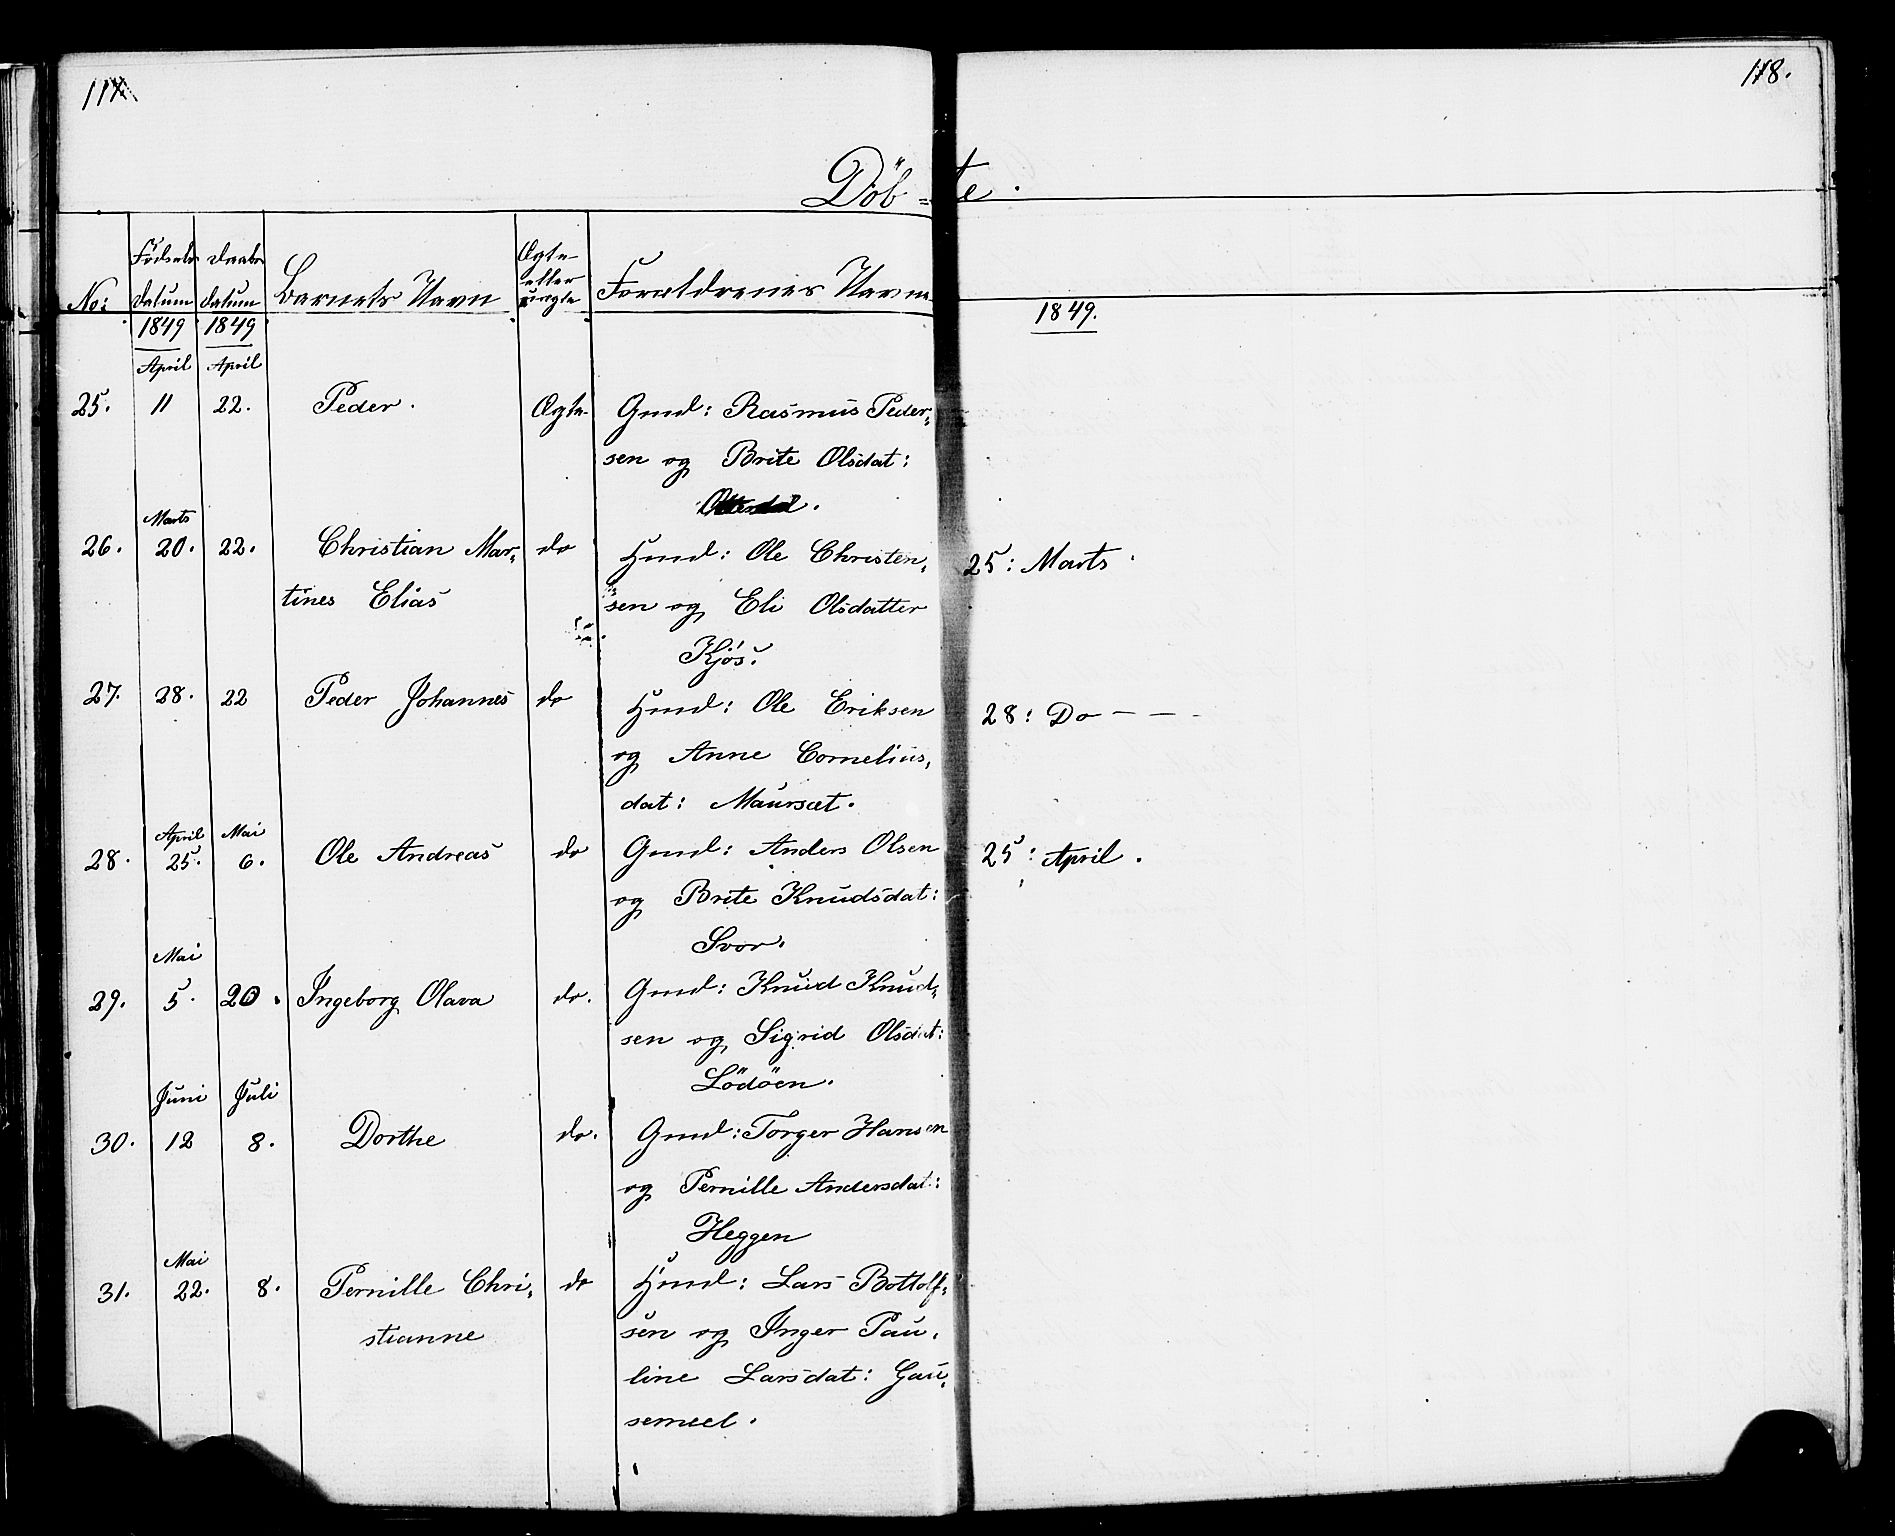 118.
Döb-te.
No: Fødsels Datum Daabs Datum Barnets Navn Ægte eller uægte Forældrenes Navne
1849 1849 1849.
April April
25. 11 22. Peder. Ægte Gmd: Rasmus Peder-
sen og Brite Olsdat:
Marts
26. 20. 22. Christian Mar- do Hmd: Ole Christen- 25: Marts
tines Elias sen og Eli Olsdatter
Kjøs.
27. 28. 22 Peder Johannes do Hmd: Ole Eriksen 28: Do - - -
og Anne Cornelius-
dat: Maursæt.
April Mai
28. 25. 6. Ole Andreas do Gmd: Anders Olsen 25: April.
og Brite Knudsdat:
Svor.
Mai
29. 5. 20. Ingeborg Olava do. Gmd: Knud Knud-
sen og Sigrid Olsdat:
Lödöen.
Juni Juli
30. 12 8. Dorthe do. Gmd: Torger Hansen
og Pernille Andersdat:
Heggen
Mai
31. 22. 8. Pernille Chri- do Hmd: Lars Bottolf-
stianne sen og Inger Pau-
line Larsdat: Gau-
semeel.